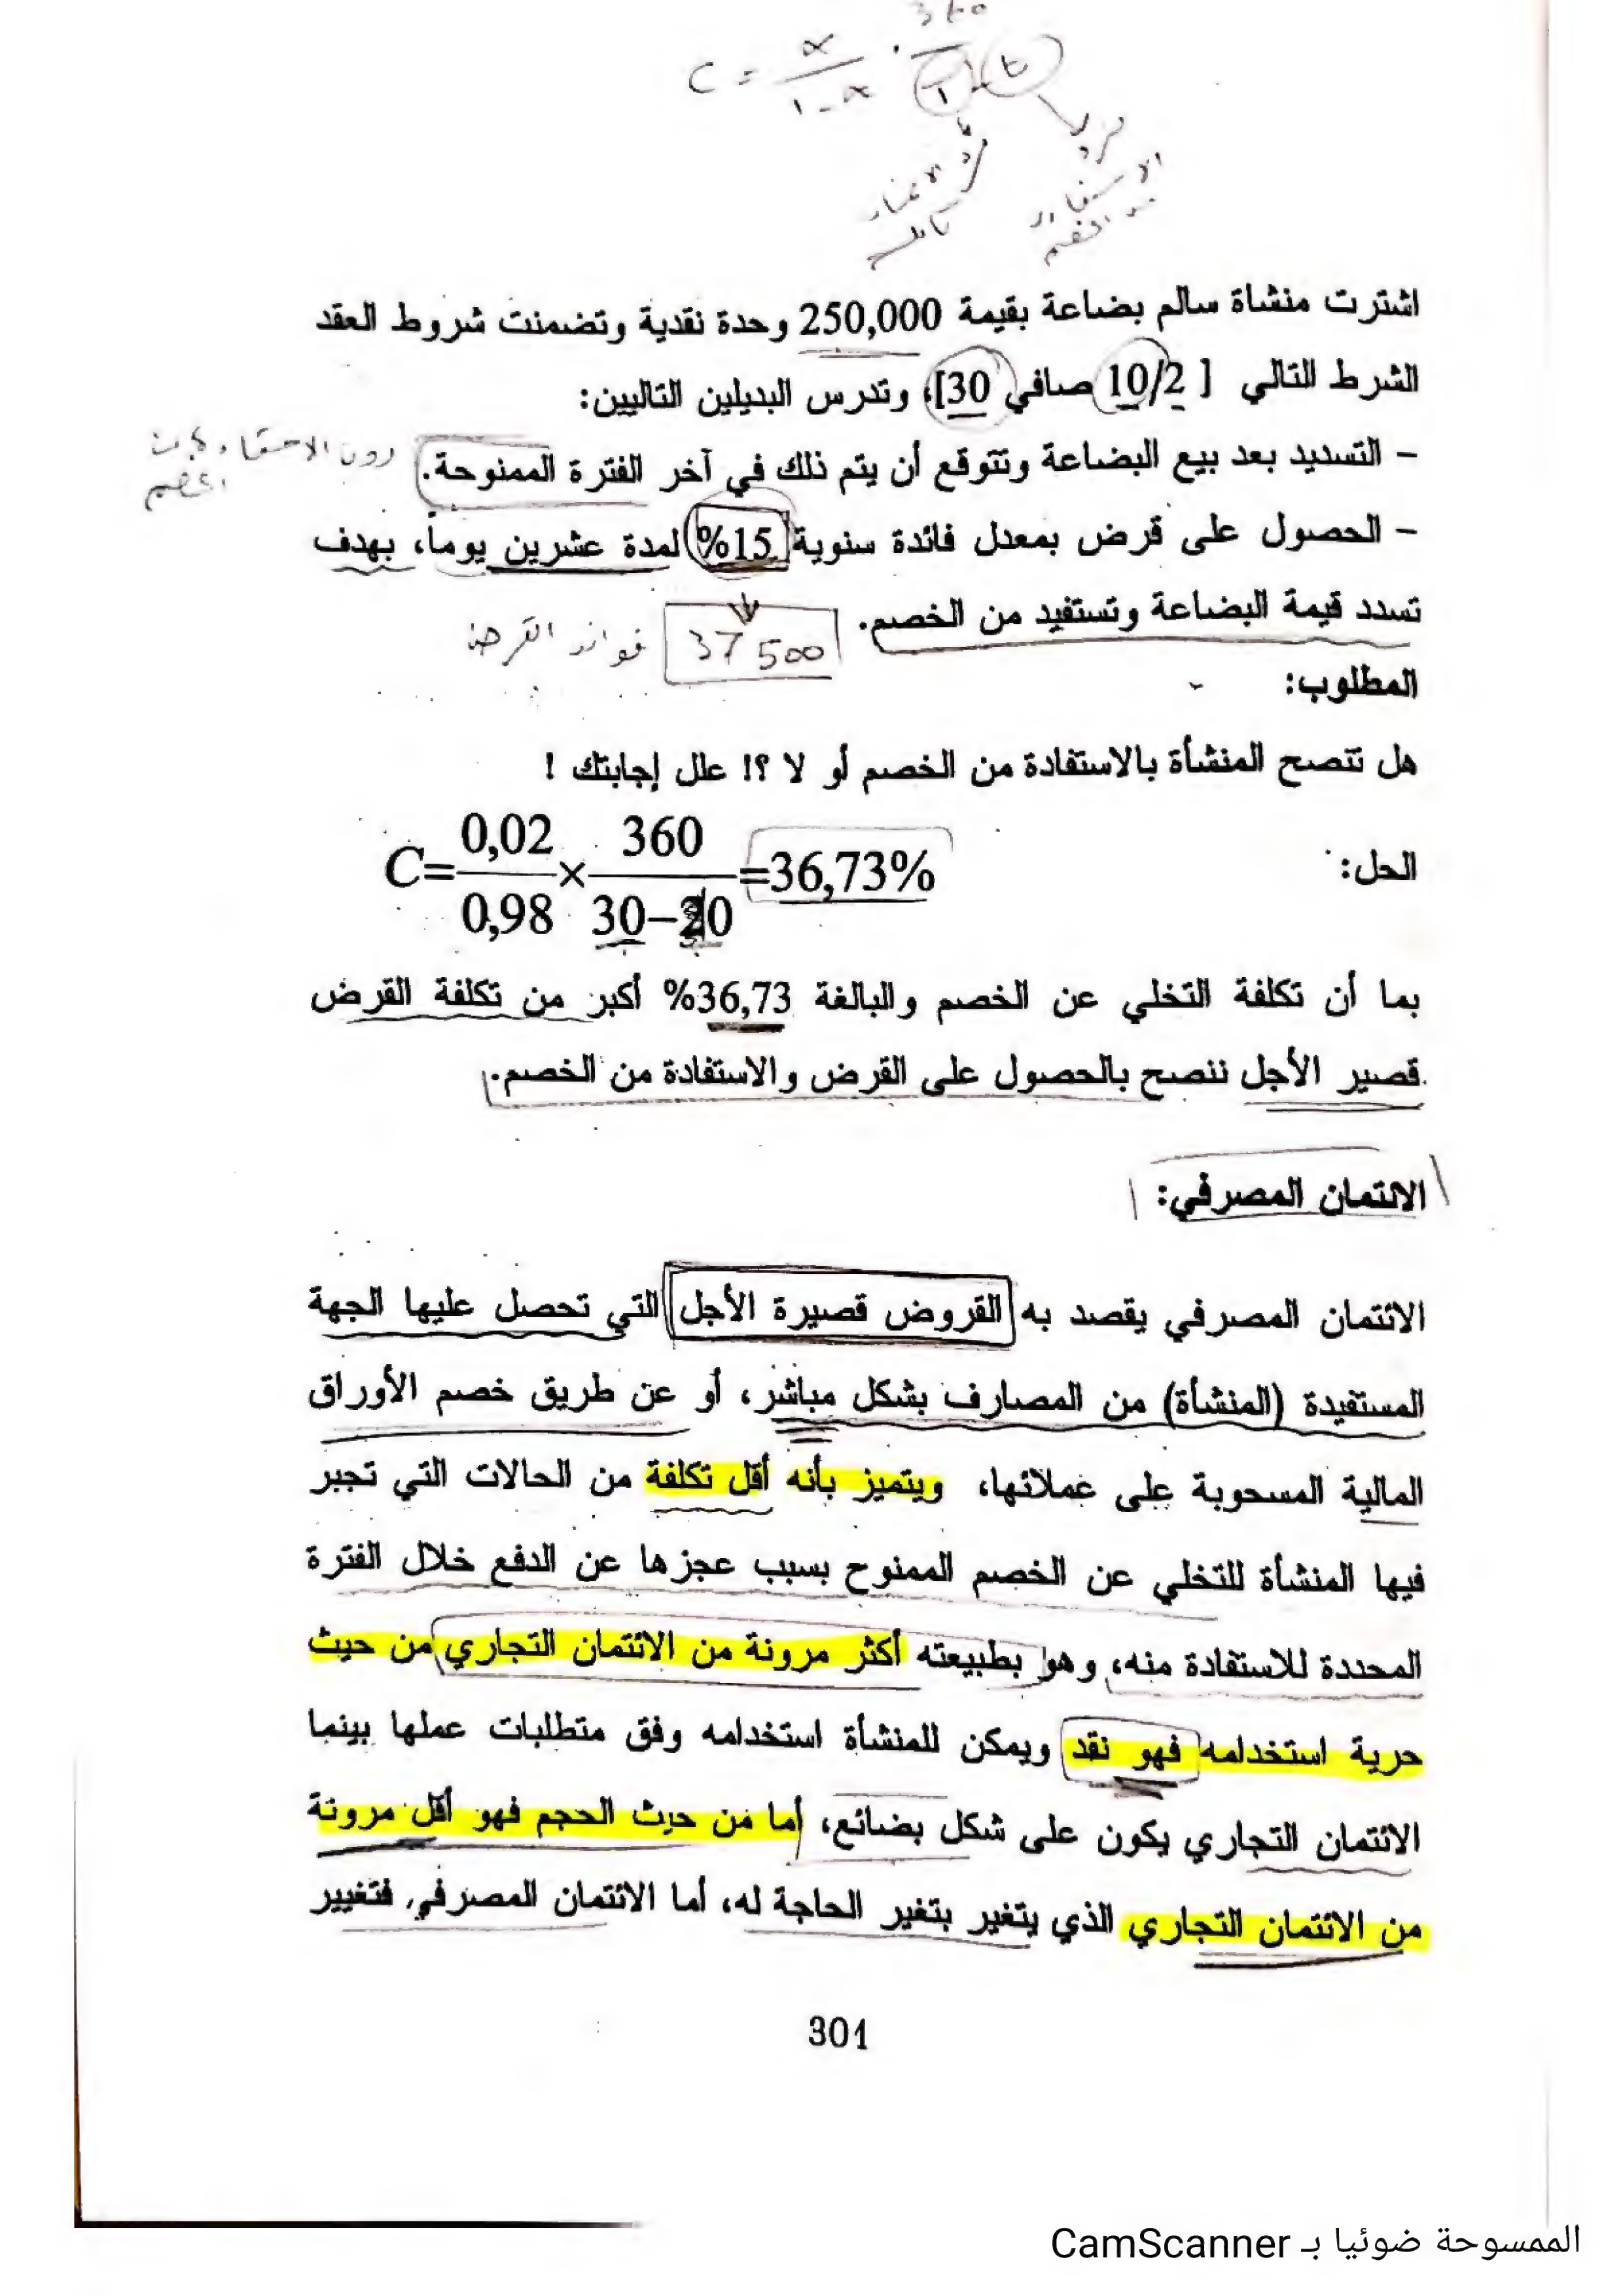 C = α / 1-α . 360 / T - t
فترة الائتمان كاملة
فترة الاستفادة من الخصم
اشترت منشاة سالم بضاعة بقيمة 250,000 وحدة نقدية وتضمنت شروط العقد
الشرط التالي [ 10/2 صافي 30]، وتدرس البديلين التاليين:
– التسديد بعد بيع البضاعة وتتوقع أن يتم ذلك في آخر الفترة الممنوحة.
دون الاستفادة من الخصم
– الحصول على قرض بمعدل فائدة سنوية 15% لمدة عشرين يوماً، بهدف
تسدد قيمة البضاعة وتستفيد من الخصم.
37500 فوائد القرض
المطلوب:
هل تتصح المنشأة بالاستفادة من الخصم أو لا ؟! علل إجابتك !
الحل: C=0,02/0,98 × 360/30–10 =36,73%
بما أن تكلفة التخلي عن الخصم والبالغة 36,73% أكبر من تكلفة القرض
قصير الأجل ننصح بالحصول على القرض والاستفادة من الخصم.
الائتمان المصرفي:
الائتمان المصرفي يقصد به القروض قصيرة الأجل التي تحصل عليها الجهة
المستفيدة (المنشأة) من المصارف بشكل مباشر، أو عن طريق خصم الأوراق
المالية المسحوبة على عملائها، ويتميز بأنه أقل تكلفة من الحالات التي تجبر
فيها المنشأة للتخلي عن الخصم الممنوح بسبب عجزها عن الدفع خلال الفترة
المحددة للاستفادة منه، وهو بطبيعته أكثر مرونة من الائتمان التجاري من حيث
حرية استخدامه فهو نقد ويمكن للمنشأة استخدامه وفق متطلبات عملها بينما
الائتمان التجاري يكون على شكل بضائع، أما من حيث الحجم فهو أقل مرونة
من الائتمان التجاري الذي يتغير بتغير الحاجة له، أما الائتمان المصرفي فتغيير
301
الممسوحة ضوئيا بـ CamScanner